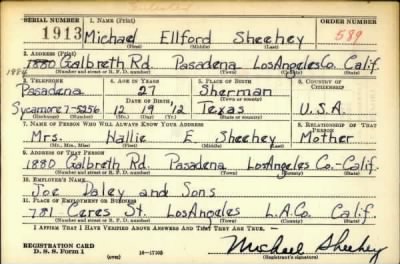 SERIAL NUMBER 1. NAME (Print) ORDER NUMBER
1913 Michael Ellford Sheehey 589
(First) (Middle) (Last)
2. ADDRESS (Print)
1880 Galbreth Rd. Pasadena LosAngeles Co. Calif.
(Number and street or R. F. D. number) (Town) (County) (State)
1884
3. TELEPHONE 4. AGE IN YEARS 5. PLACE OF BIRTH 6. COUNTRY OF CITIZENSHIP
Pasadena 27 Sherman
DATE OF BIRTH (Town or county)
Sycamore 7-5256 12 19 12 Texas U.S.A.
(Exchange) (Number) (Mo.) (Day) (Yr.) (State or country)
7. NAME OF PERSON WHO WILL ALWAYS KNOW YOUR ADDRESS 8. RELATIONSHIP OF THAT PERSON
Mrs. Hallie E. Sheehey Mother
(Mr., Mrs., Miss) (First) (Middle) (Last)
9. ADDRESS OF THAT PERSON
1880 Galbreth Rd. Pasadena LosAngeles Co.-Calif.
(Number and street or R. F. D. number) (Town) (County) (State)
10. EMPLOYER'S NAME
Joe Daley and Sons
11. PLACE OF EMPLOYMENT OR BUSINESS
781 Ceres St. LosAngeles L.A.Co. Calif.
(Number and street or R. F. D. number) (Town) (County) (State)
I AFFIRM THAT I HAVE VERIFIED ABOVE ANSWERS AND THAT THEY ARE TRUE.
REGISTRATION CARD
D. S. S. Form 1 (over) Michael Sheehey
(Registrant's signature)